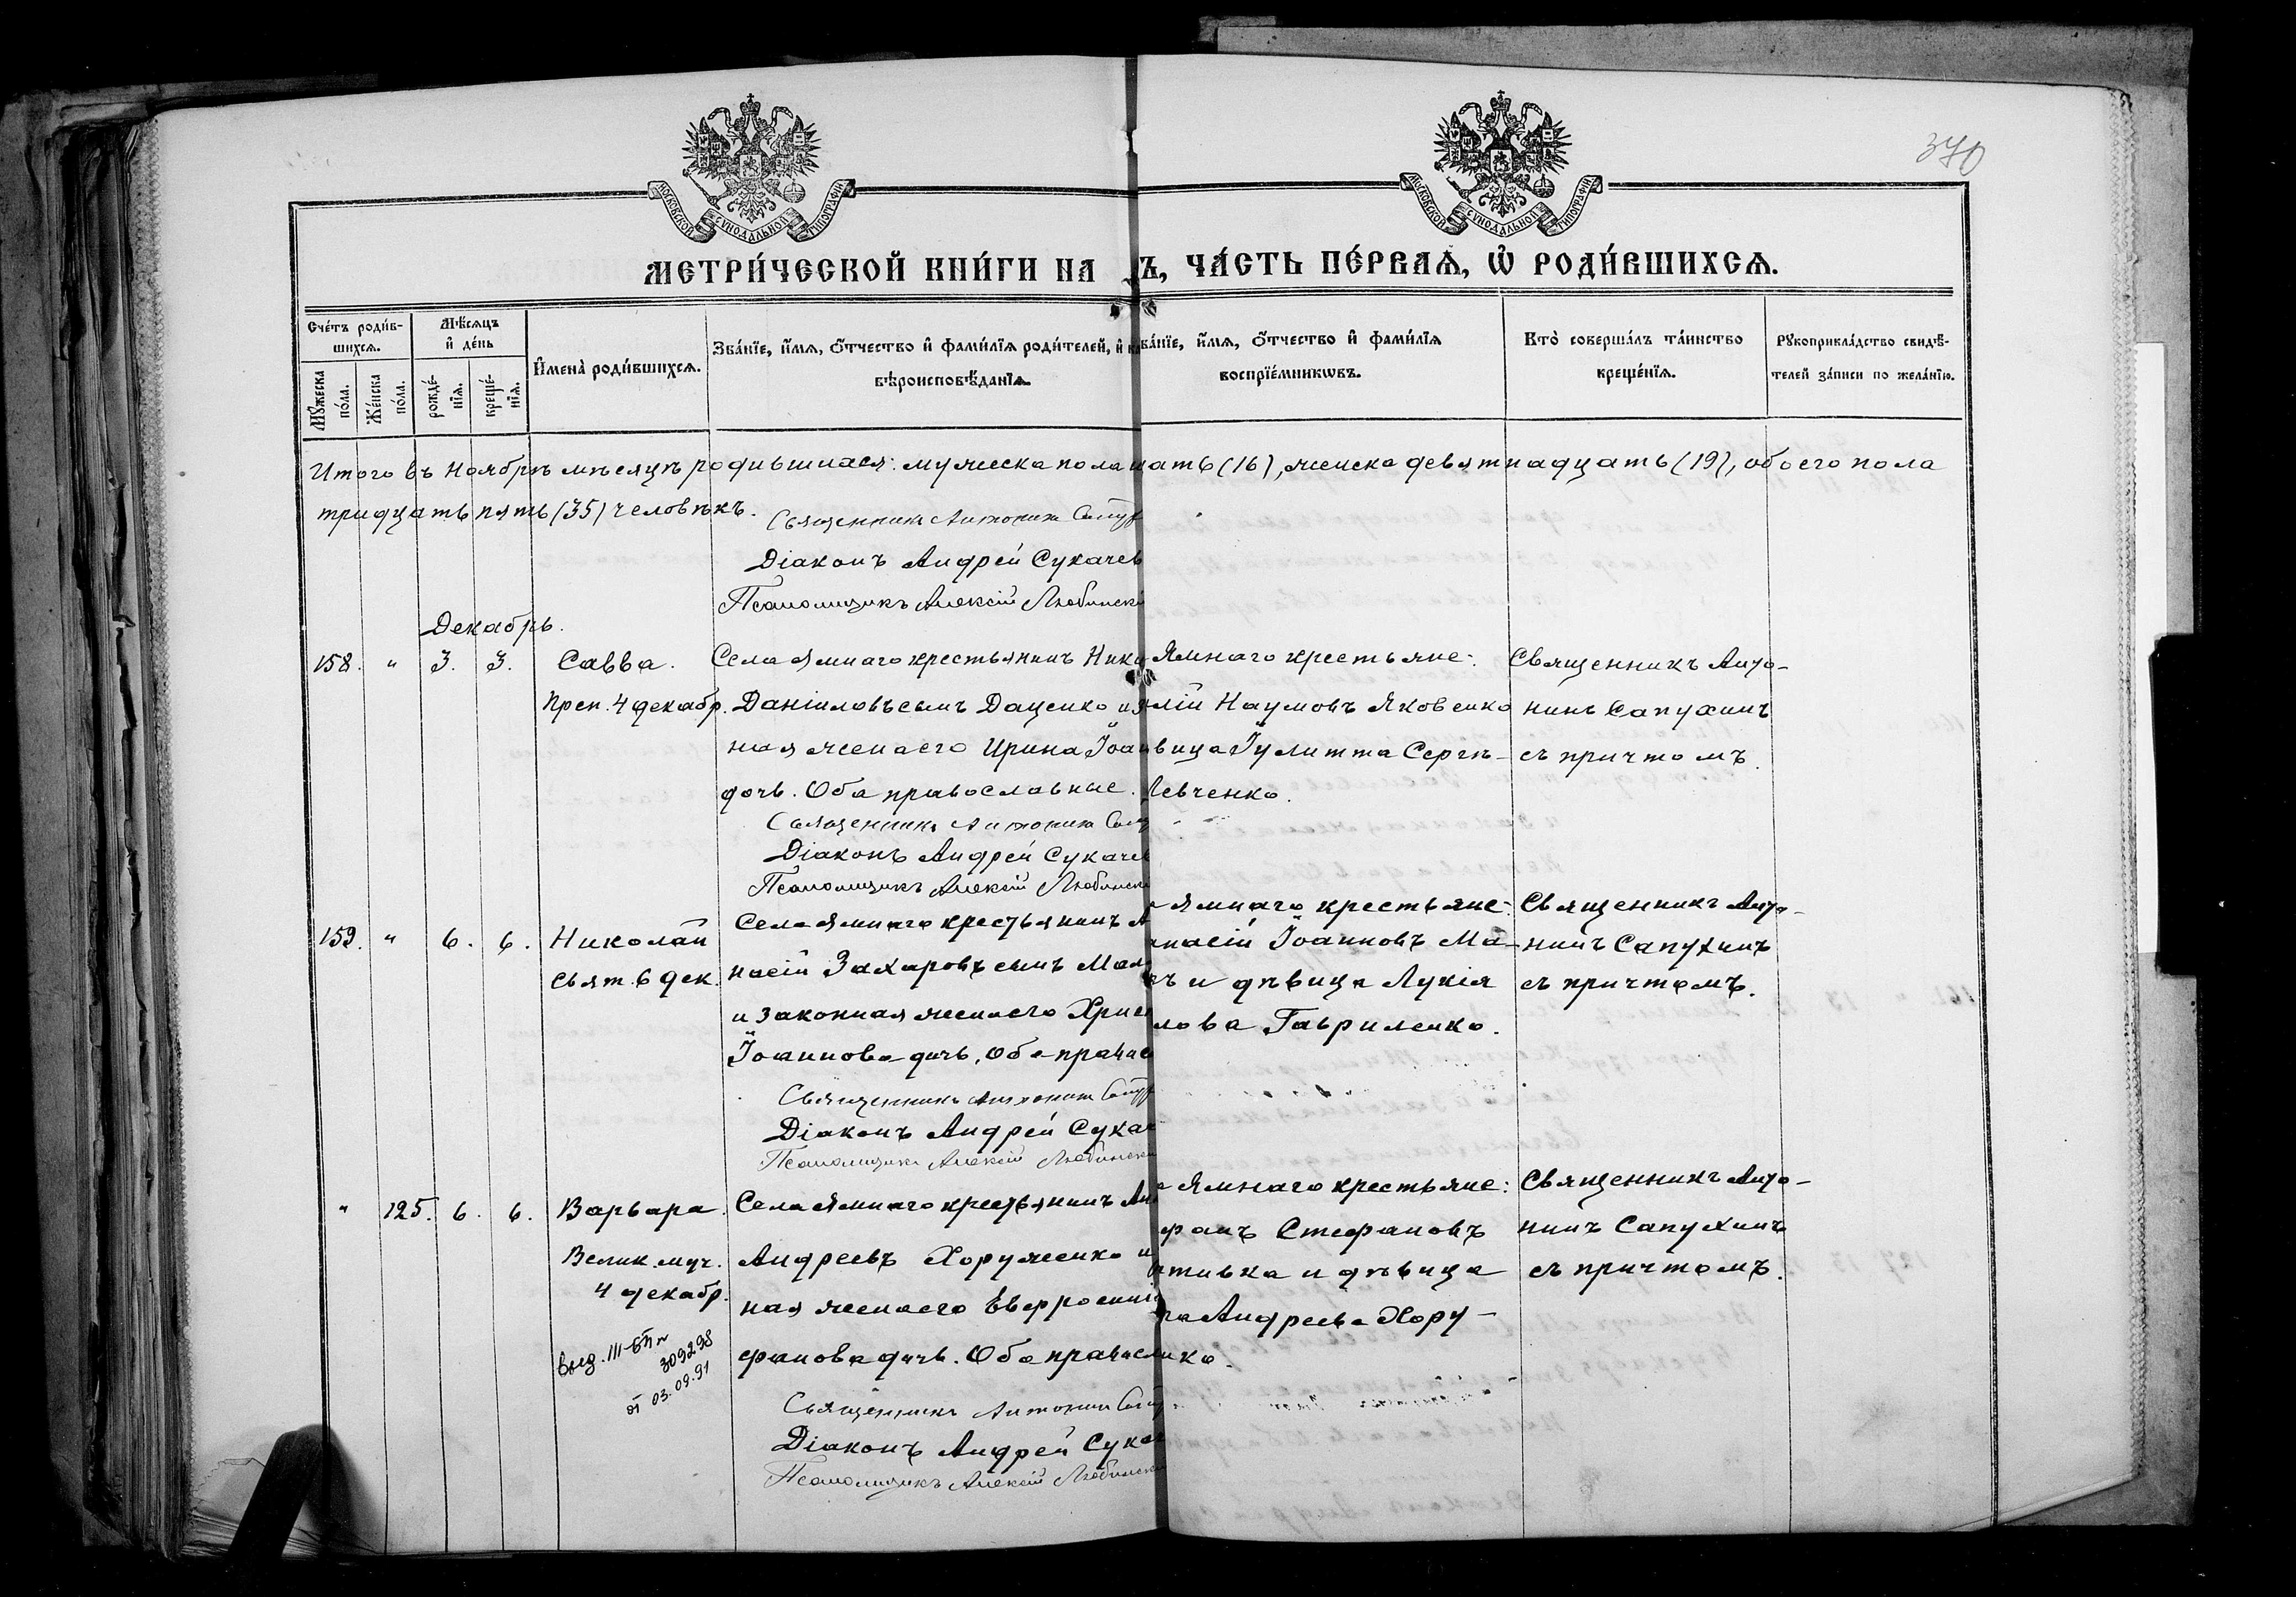 370
МОСКОВСКОЙ СУНОДАЛЬНОЙ ТИПОГРАФІИ
МОСКОВСКОЙ СУНОДАЛЬНОЙ ТИПОГРАФІИ
МЕТРИ́ЧЕСКОЙ КНИ́ГИ НА Ъ, ЧА́СТЬ ПЕ́РВАѦ, Ѡ РОДИ́ВШИХСѦ.
Сче́тъ роди́в-
шихсѧ.
Му́жеска по́ла.
Же́нска по́ла.
Мѣ́сѧцъ
и де́нь
рожде́-
нїѧ.
креще́-
нїѧ.
Имена̀ роди́вшихсѧ.
Зва́нїе, и́мѧ, о́тчество и фами́лїѧ роди́телей, и
вѣроисповѣ́данїѧ.
ва́нїе, и́мѧ, о́тчество и фами́лїѧ
воспрїе́мникѡвъ.
Кто̀ соверша́лъ та́инство
креще́нїѧ.
Рукоприкла́дство свидѣ́-
телей за́писи по жела́нїю.
Итого въ Ноябрѣ мѣсяцѣ родившихся: мужеска пола цать (16), женска девятнадцать (19), обоего пола
тридцать пять (35) человѣкъ.
Священникъ Антонинъ Сапух
Діаконъ Андрей Сукачев
Псаломщикъ Алексій Любински
Декабрь.
158. " 3. 3. Савва.
Преп. 4 декабр.
Села Ямнаго крестьянинъ Ники
Даніиловъ сынъ Даценко и з
ная жена его Ирина Іоан
дочь. Оба православные.
Священникъ Антонинъ Сапу
Діаконъ Андрей Сукачев
Псаломщикъ Алексій Любински
Ямнаго крестьяне:
лій Наумовъ Яковенко
вица Іулитта Сергѣ-
Левченко.
Священникъ Анто-
нинъ Сапухинъ
съ причтомъ.
159. " 6. 6. Николай
Свят. 6 дек.
Села Ямнаго крестьянинъ А
насій Захаровъ сынъ Мал
и законная жена его Хрис
Іоаннова дочь. Оба правос
Священникъ Антонинъ Сапух
Діаконъ Андрей Сукач
Псаломщикъ Алексій Любински
Ямнаго крестьяне:
анасій Іоанновъ Ма-
ъ и дѣвица Лукія
лова Гавриленко.
Священникъ Анто-
нинъ Сапухинъ
съ причтомъ.
" 125. 6. 6. Варвара
Велик. муч.
4 декабр.
выд. III-БП №
309298
от 03.09.91
Села Ямнаго крестьянинъ Ан
Андреевъ Хоруженко и
ная жена его Евфросині
фанова дочь. Оба правосл
Священникъ Антонинъ Сапу
Діаконъ Андрей Сукач
Псаломщикъ Алексій Любински
Ямнаго крестьяне:
фанъ Стефановъ
тивка и дѣвица
на Андреева Хору-
нко.
Священникъ Анто-
нинъ Сапухинъ
съ причтомъ.